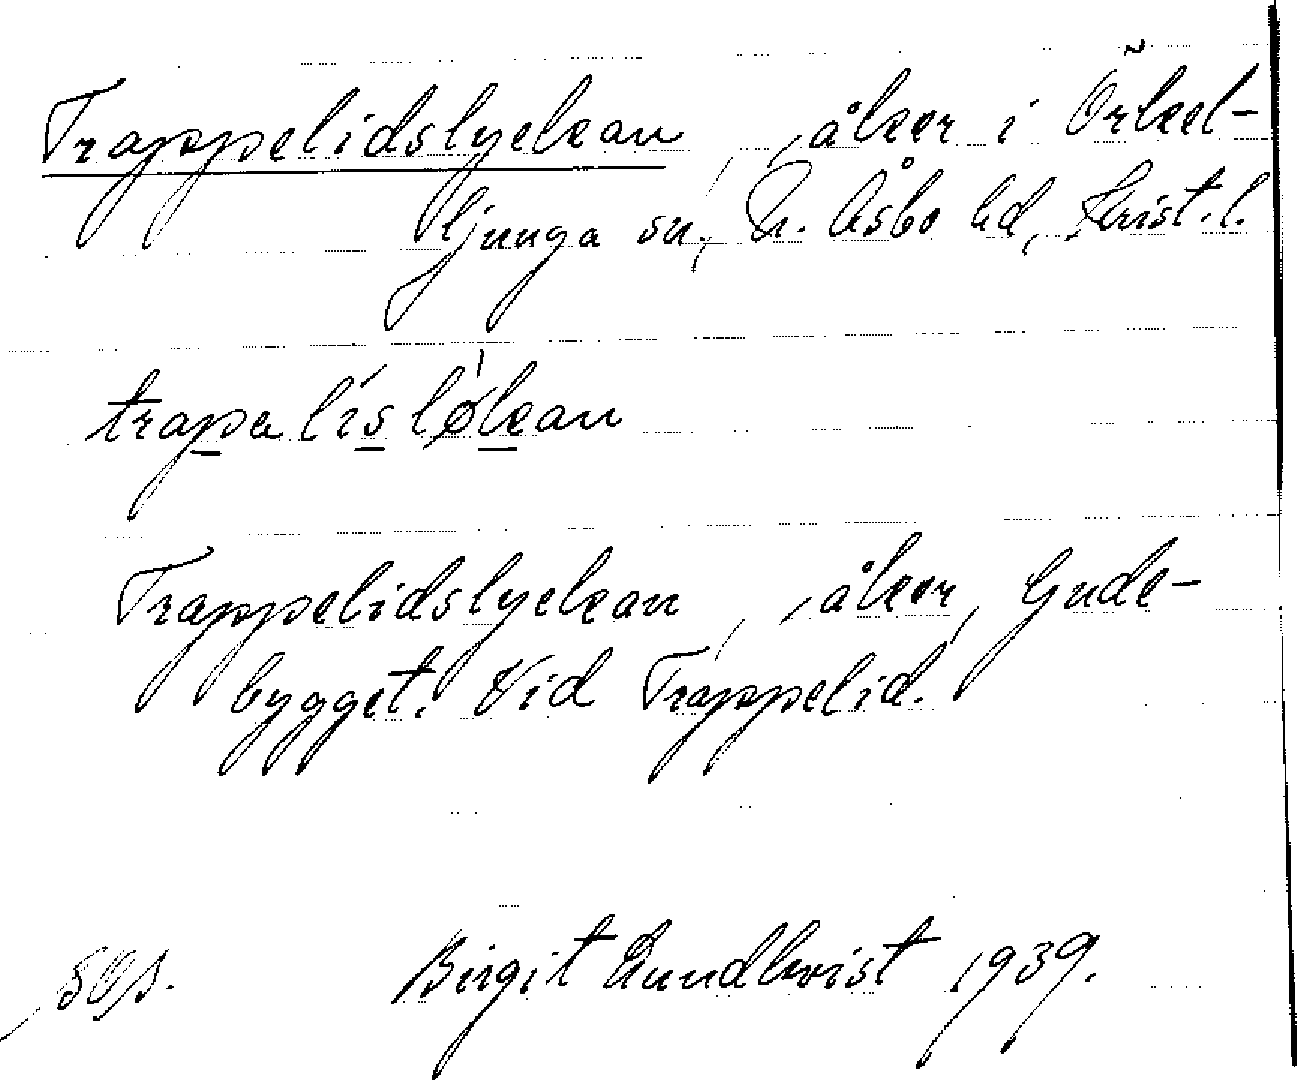 Trappelidslyckan, åker i Örkel-
ljunga sn, N. Åsbo hd, Krist. l.
trapalíslø̀kan
Trappelidslyckan, åker, Gude-
bygget. Vid Trappelid.
Birgit Lundkvist 1939.